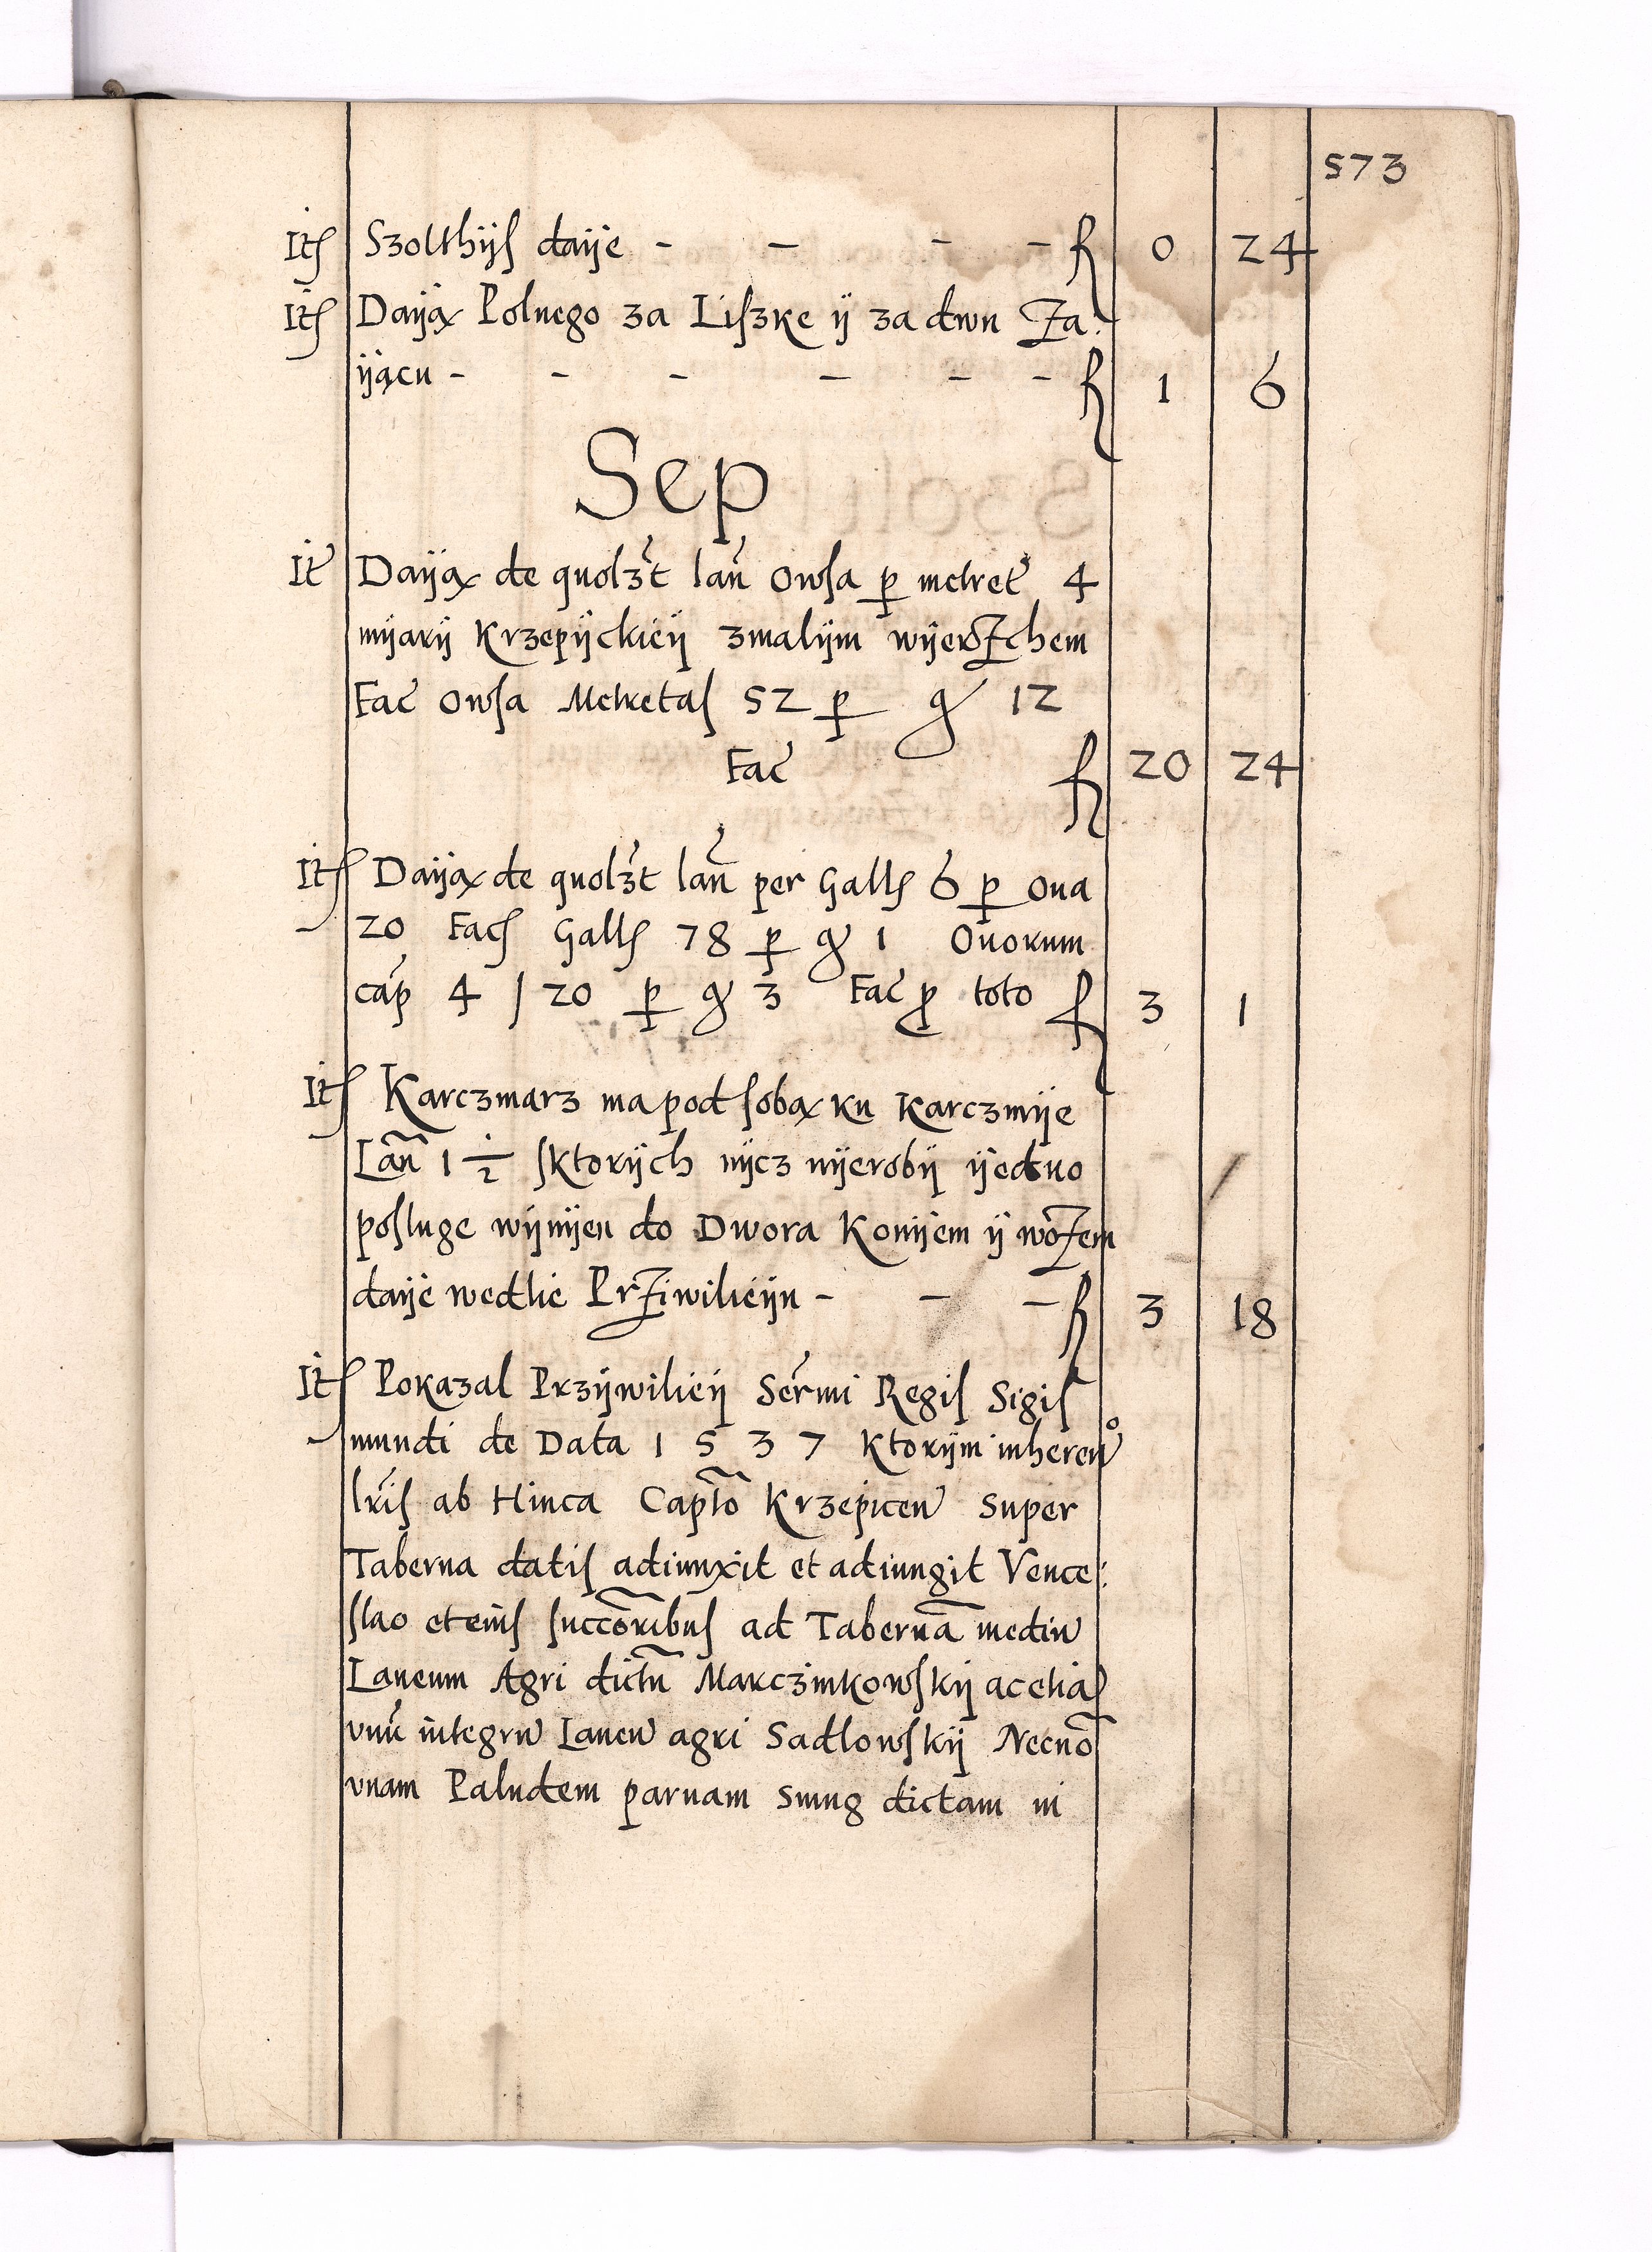 573
Itſ Szolthijſ daije - - - - f 0 24
Itſ Daiją Polnego za Liſzke ij za dwu Za:
ijącu - - - - - - f 1 6
Sep
It Daiją de quolzt lan̄ owſa p metret 4
mijarij Krzepijckieij zmalijm wijerzchem
Fac owſa Metretaſ 52 p g 12
Fac f 20 24
Itſ Daiją de quolzt lan̄ per Gallſ 6 p oua
20 Facſ Gallſ 78 p g 1 Ouorum
cap 4 / 20 p g 3 Fac p toto f 3 1
Itſ Karczmarz ma pod ſobą ku Karczmije
Lan̄ 1 1/2 ſktorijch nijcz nijerobij ijedno
poſluge wijnijen do Dwora Konijem ij wozem
daije wedlie Prziwilieiju - - - f 3 18
Itſ Pokazal Przijwilieij Sermi Regiſ Sigiſ
mundi de Data 1537 Ktorijm inheren
lriſ ab Hinca Capto Krzepicen super
Taberna datiſ adiunxit et adiungit Vence:
ſlao et eiuſ ſuccoribuſ ad Tabernā mediu
Laneum Agri dictū Marczinkowſkij ac etia
vnū integru Laneu agri Sadlowſkij Necnō
vnam Paludem paruam Smug dictam in